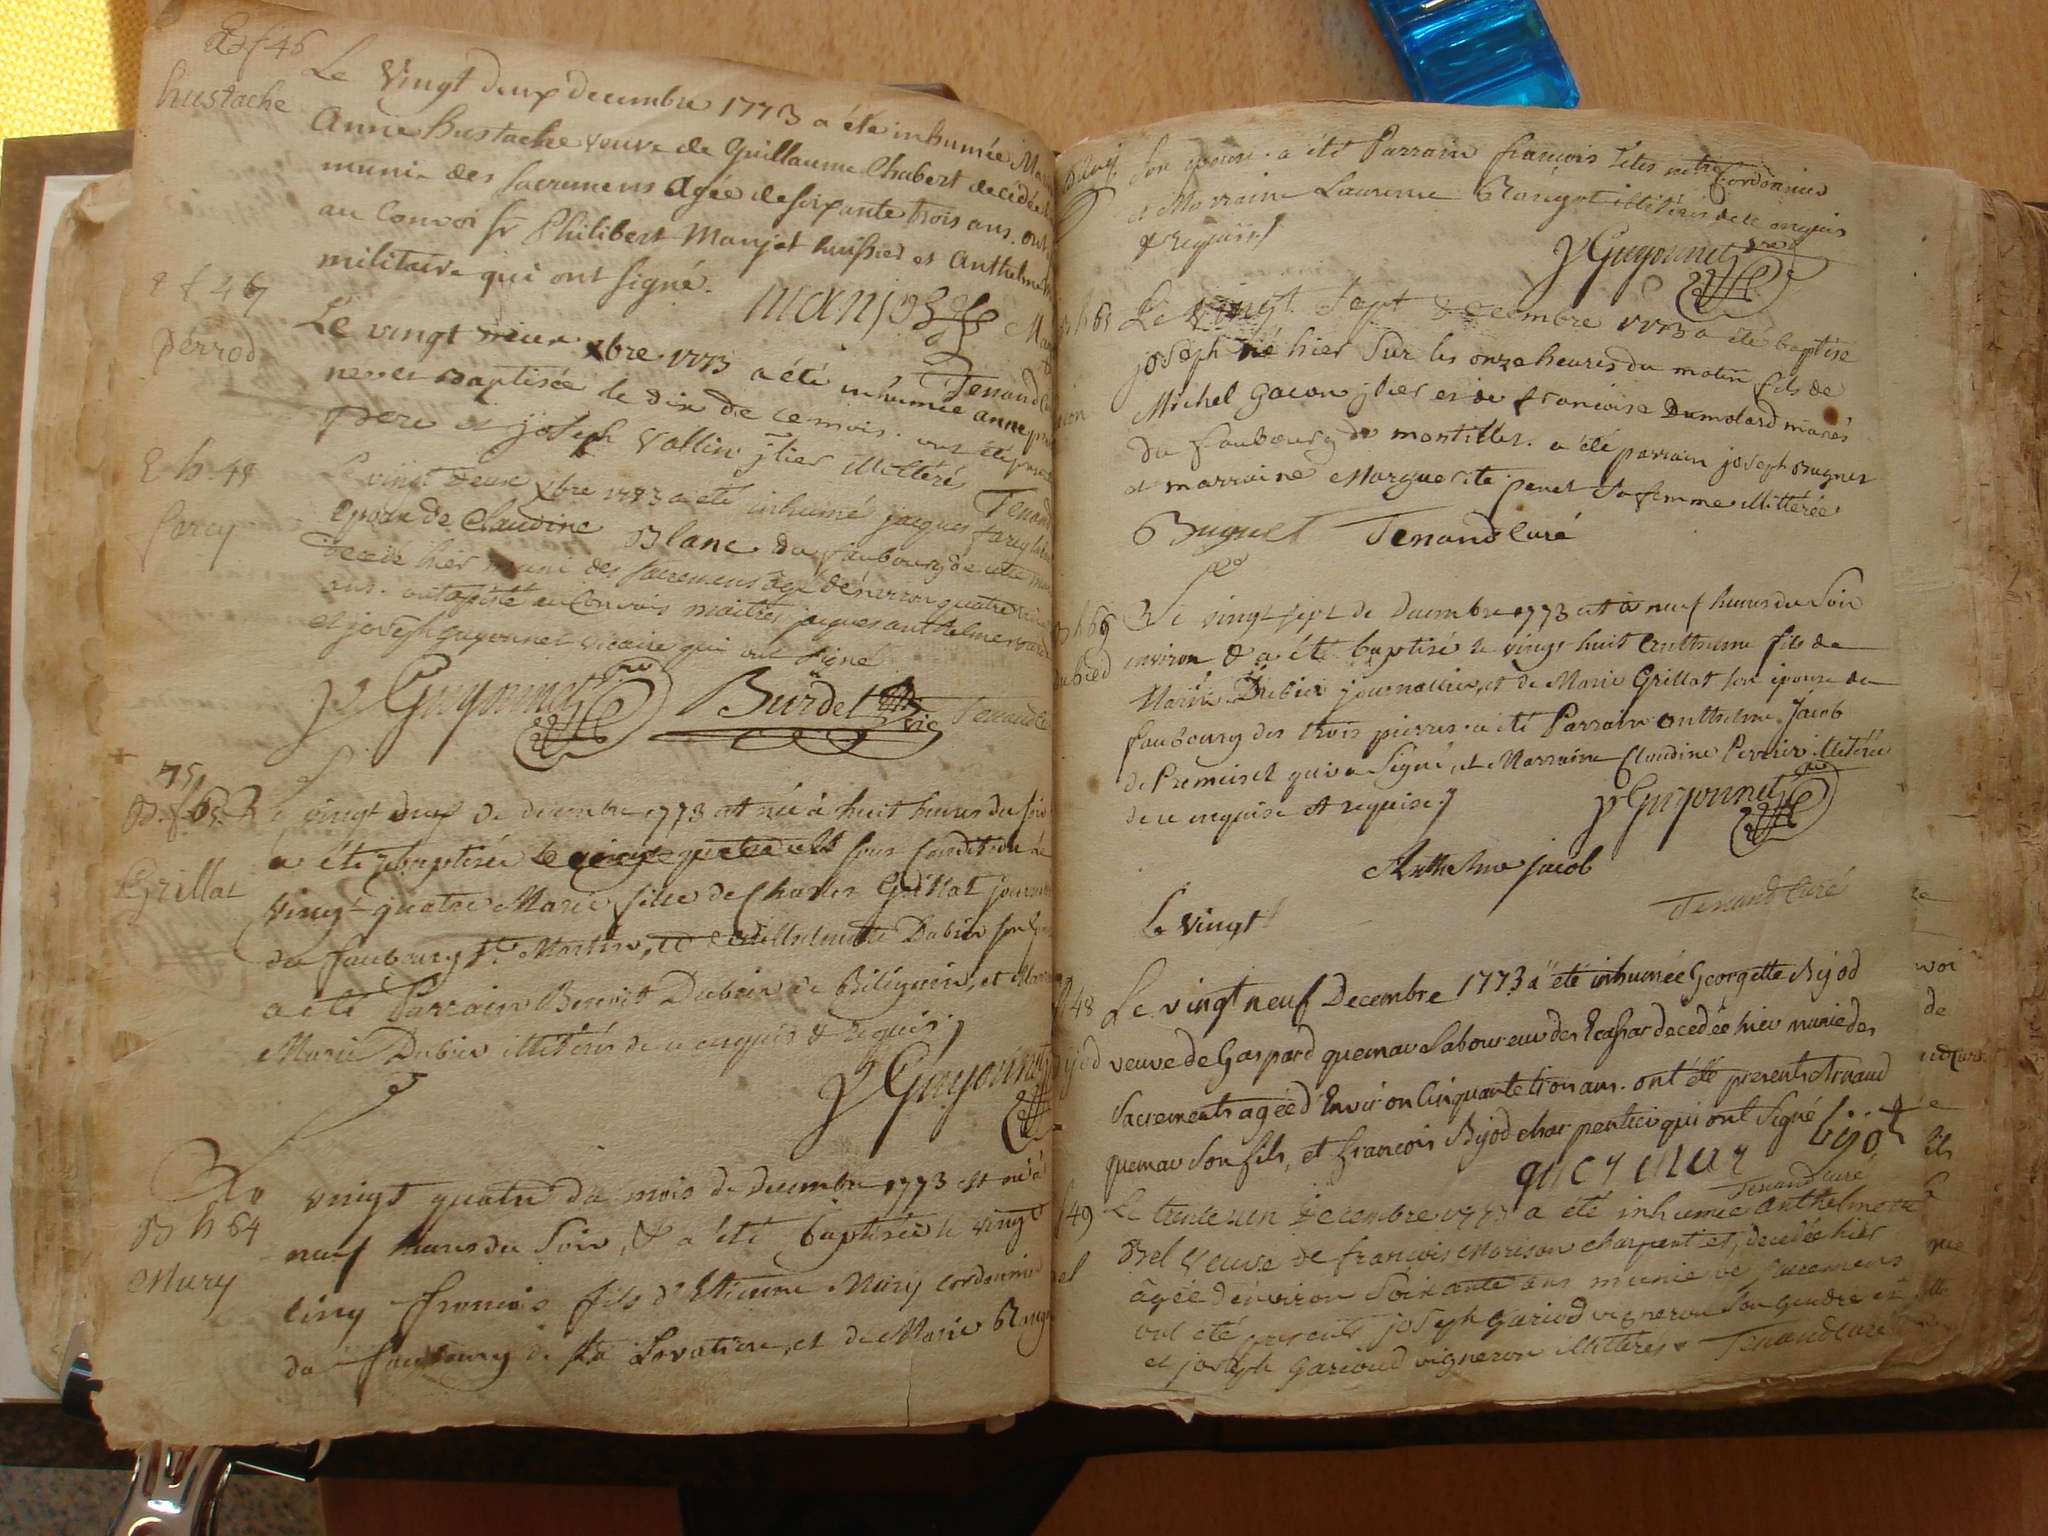 hustache
Le Vingt deux decembre 1773 a été inhumée
Anne hustache veuve de Guillaume Chabert decedée
munie des sacremens agée de soixante trois ans. ont
au convoi Sr Philibert Manjot huissier et Anthelme
militaire qui ont signé.
manjot
Tenand
Perrod
Le vingt deux xbre 1773 a été inhumée anne
née et Baptisée le dix de ce mois. ont été
pere et joseph Vallin jtier illitérés
Tenand
E h 48
farcy
Le vint deux xbre 1773 a été inhumé jacques farcy
Epoux de Claudine Blanc du faubourg de
decédé hier muni des sacremens agé d'environ quatre
ans. ont assisté au Convois maitres jaques anthelme
et joseph guyonnet vicaire qui ont signé
J Guyonnet vre Burdet vic Tenand
B. f. 75
Grillat
Le vingt deux de decembre 1773 est née à huit heures du soir
a été rebaptisée sous condition le
vingt-quatre Marie fille de Charles Grillat
du faubourg St. Martin, et Dubier son
a été Parrain Benoit Dubier de Billignin, et
Marie Dubier illitérés de ce enquis & requis.
J Guyonnet
B h 64
Mury
Le vingt quatre du mois de decembre 1773 est né à
neuf heures du soir, & a été baptisé le vingt
cinq francois fils d'Etienne Mury cordonnier
du faubourg de La Lovatiere, et de Marie
son epouse. a été Parrain françois cordonnier
et Marraine Laurence illitérés de ce enquis
& requis
J Guyonnet vre
h 65
Le vingt sept decembre 1773 a été baptisé
joseph né hier sur les onze heures du matin fils de
Michel Gacon jtier et de françoise Dumolard mariés
du faubourg de montillet. a été parrain joseph Bugnet
et marraine Marguerite penet sa femme illitérée
Bugnet Tenand Curé
h 66
Le vingt sept de decembre 1773 est né neuf heures du soir
environ & a été baptisé le vingt huit Anthelme fils de
Marin Dubier journallier, et de Marie Grillat son épouse du
faubourg des trois pierres. a été Parrain Anthelme Jacob
de Premeisel qui a signé, et Marraine Claudine Perrier illitérée
de ce enquise et requise.
J Guyonnet vre
Anthelme jacob
Tenand Curé
Le vingt
48
Le vingt neuf Decembre 1773 a été inhumée Georgette Bijod
veuve de Gaspard quemar laboureur des Ecassar decedée hier munie des
sacrements agée d'Environ Cinquante trois ans. ont été presents Arnaud
quemar son fils, et francois Bijod charpentier qui ont signé
bijot
Tenand curé
49
Le trente un Decembre 1773 a été inhumée anthelmette
Bel veuve de françois Morison charpentier, decedée hier
âgée d'environ soixante ans munie de sacremens
ont été presents joseph gariod vigneron son gendre et
et joseph garioud vigneron illitérés Tenand curé